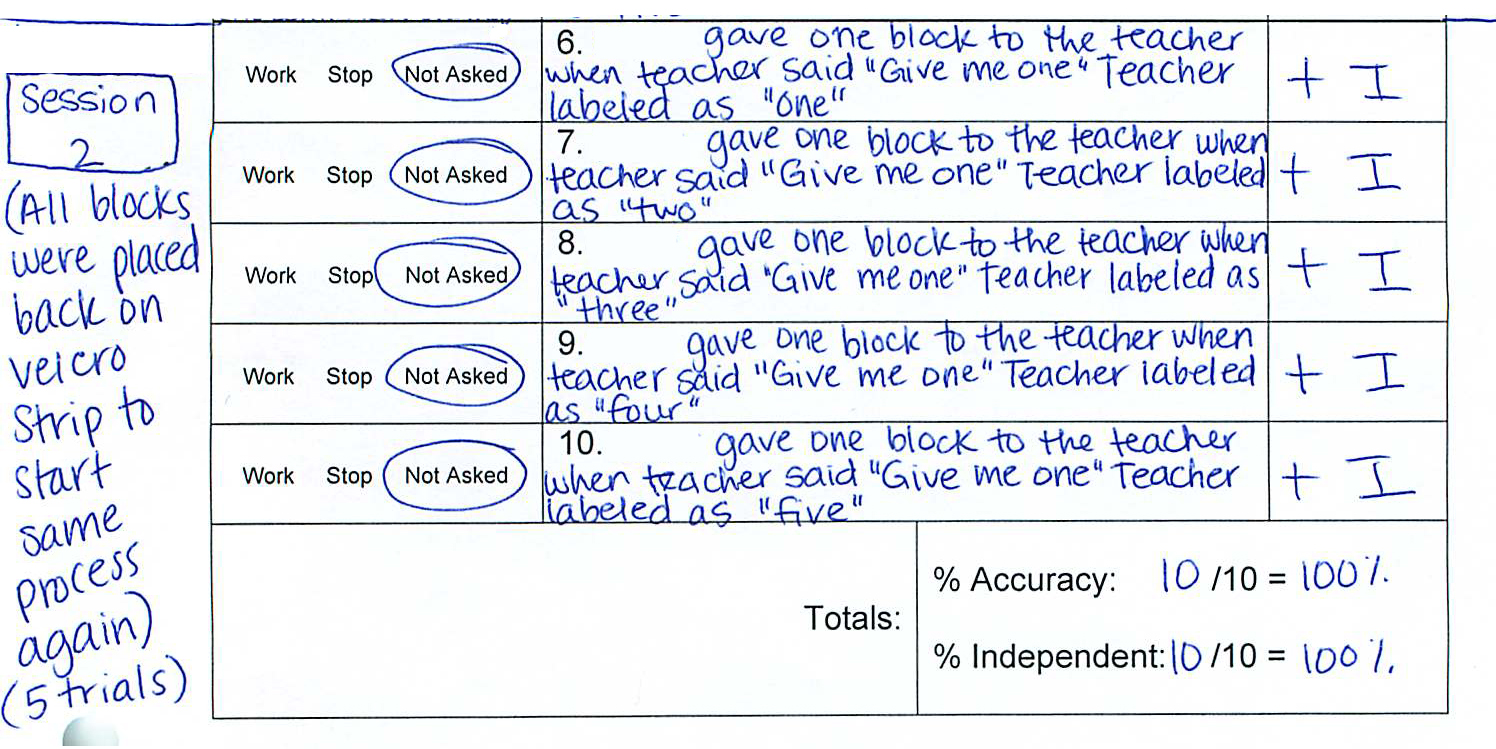 Session
2
(All blocks
were placed
back on
velcro
Strip to
start
same
process
again)
(5 trials)
Work Stop Not Asked
6. gave one block to the teacher
when teacher said "Give me one" Teacher
labeled as "one"
+ I
Work Stop Not Asked
7. gave one block to the teacher when
teacher said "Give me one" Teacher labeled
as "two"
+ I
Work Stop Not Asked
8. gave one block to the teacher when
teacher said "Give me one" Teacher labeled as
"three"
+ I
Work Stop Not Asked
9. gave one block to the teacher when
teacher said "Give me one" Teacher labeled
as "four"
+ I
Work Stop Not Asked
10. gave one block to the teacher
when teacher said "Give me one" Teacher
labeled as "five"
+ I
Totals:
% Accuracy: 10 /10 = 100%
% Independent: 10 /10 = 100%.